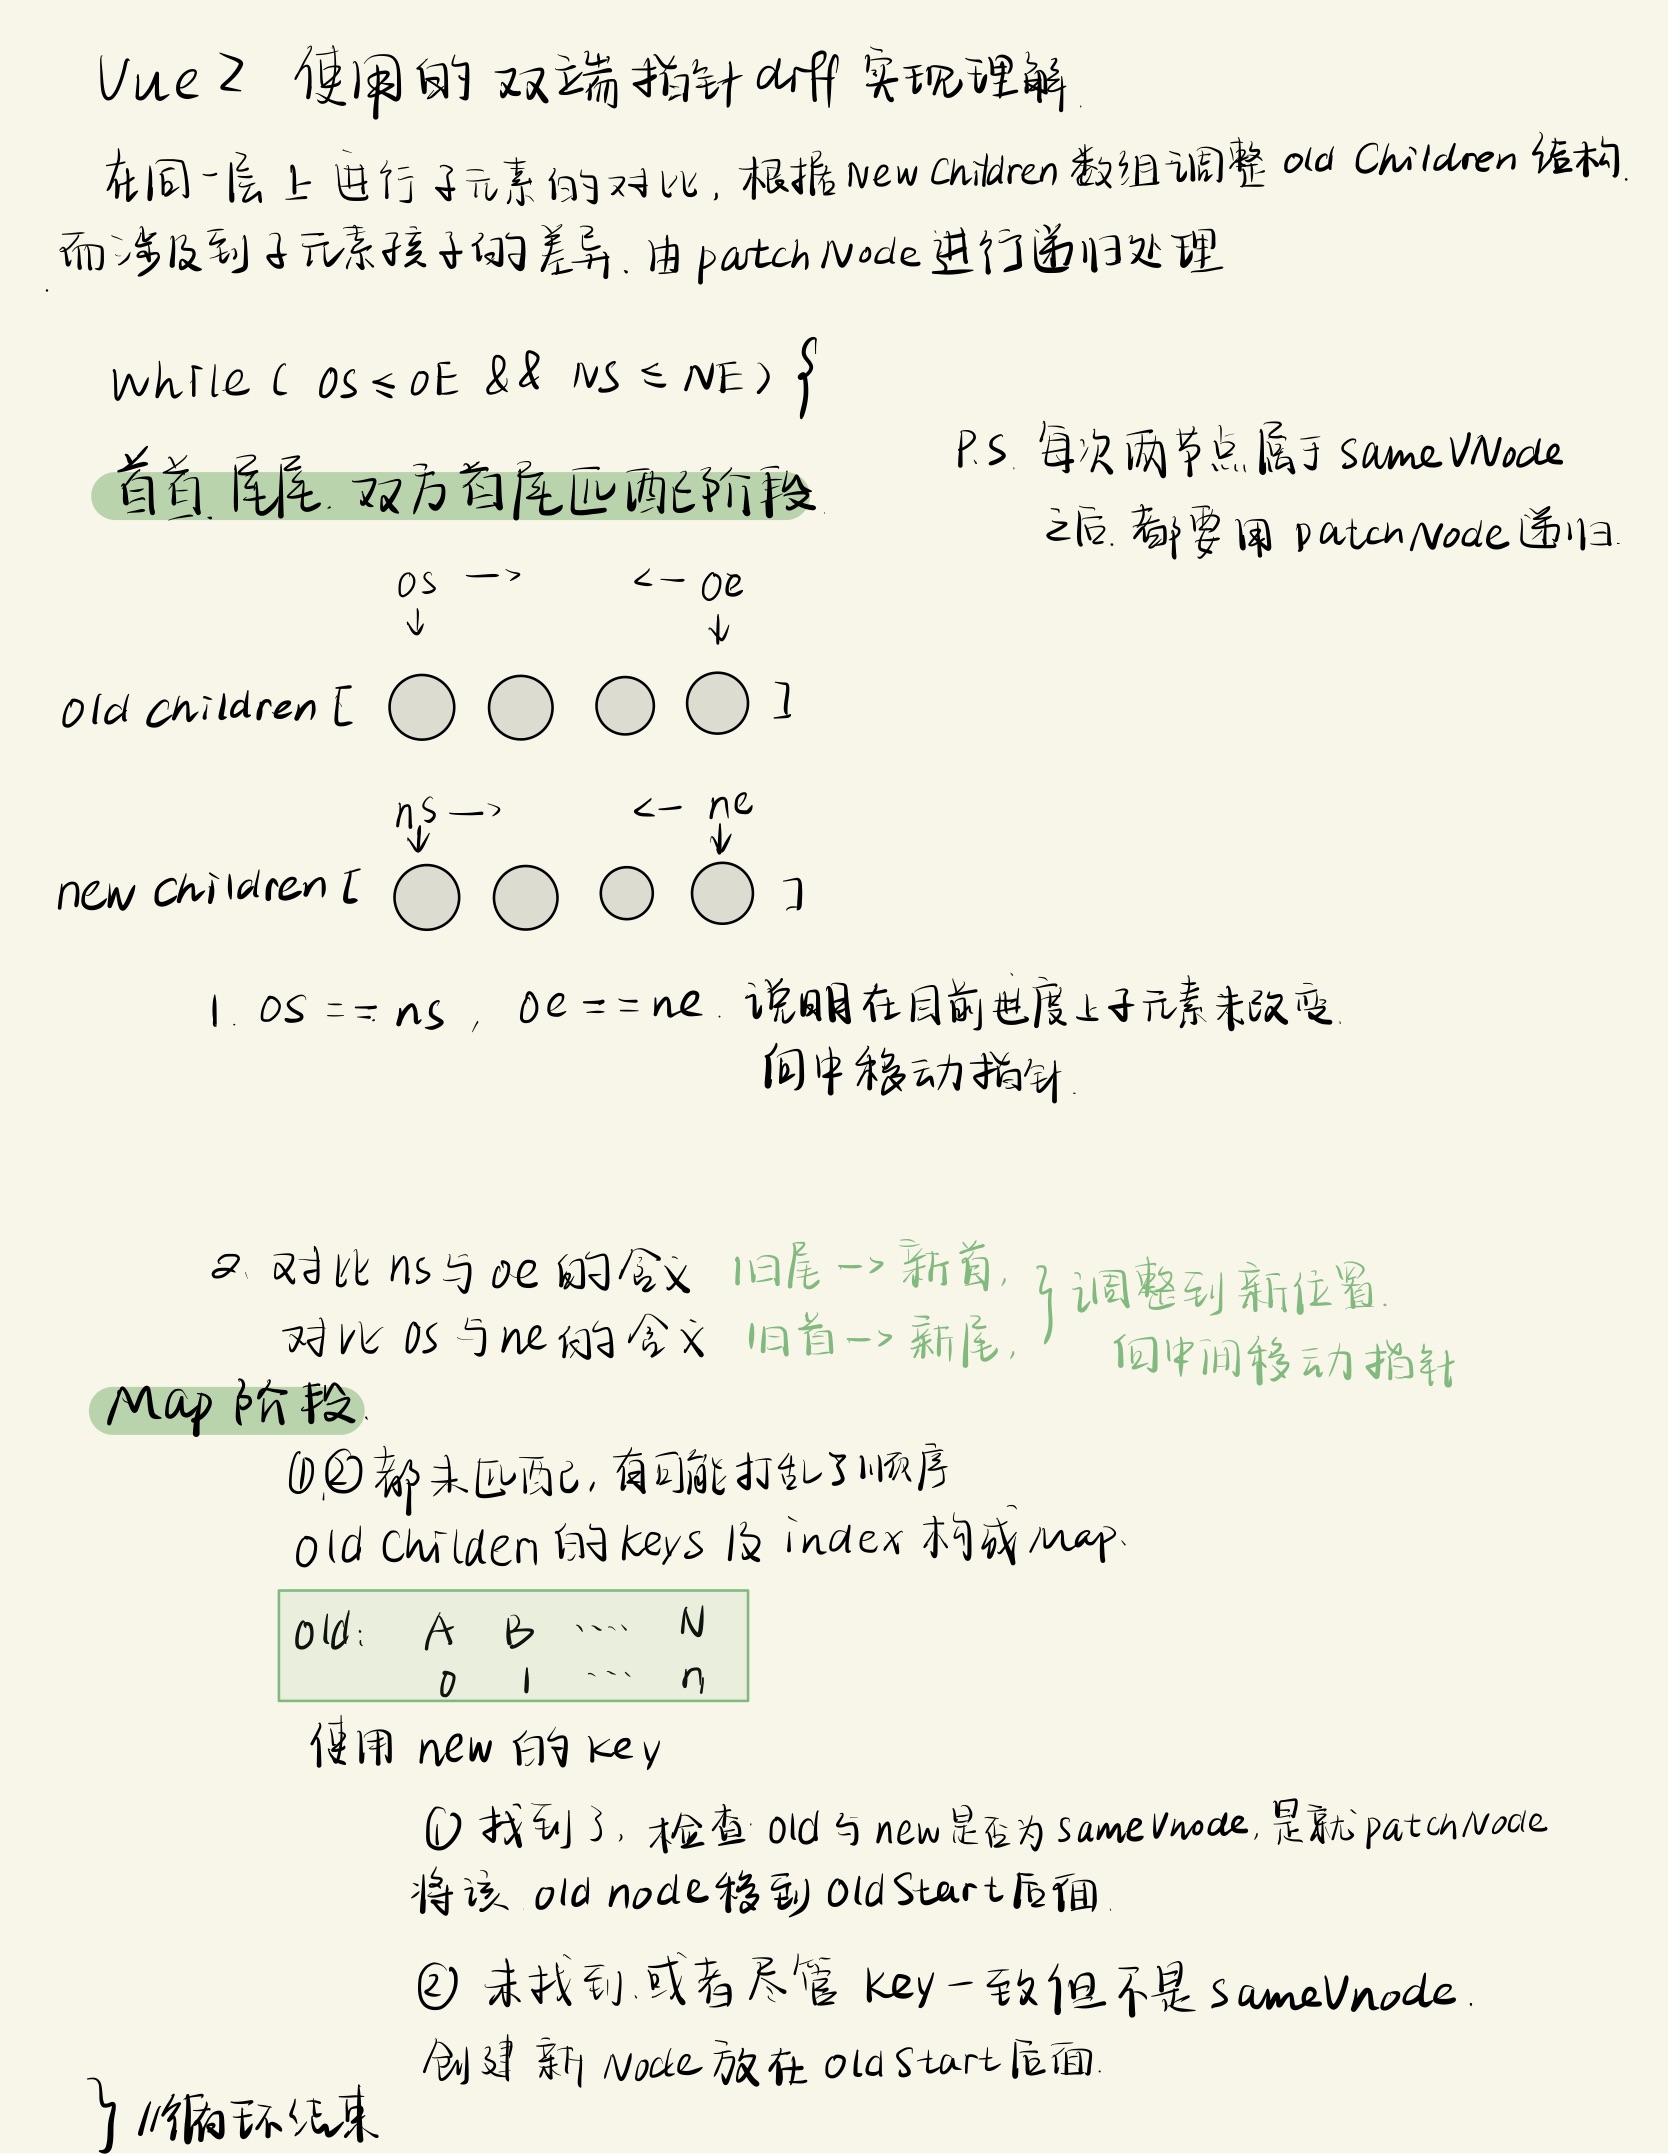 Vue2 使用的双端指针diff实现理解.
在同一层上进行子元素的对比，根据New Children数组调整old Children结构.
而涉及到子元素孩子的差异.由patchNode进行递归处理
while( OS≤OE && NS≤NE) {
P.S. 每次两节点属于sameVNode
之后.都要用patchNode递归.
首首.尾尾.双方首尾匹配阶段.
os —> <— oe
↓ ↓
old children [ ]
ns —> <— ne
↓ ↓
new children [ ]
1. os == ns , oe == ne. 说明在目前进度上子元素未改变.
向中移动指针.
2. 对比ns与oe的含义 旧尾—>新首, } 调整到新位置.
对比os与ne的含义 旧首—>新尾, 向中间移动指针
Map阶段.
①,②都未匹配,有可能打乱了顺序
old Childen的keys及index构成Map.
old: A B ···· N
0 1 ··· n
使用new的key
① 找到了,检查old与new是否为sameVnode,是就patchNode
将该old node移到oldStart后面.
② 未找到.或者尽管key一致但不是sameVnode.
创建新Node放在oldStart后面.
} //循环结束